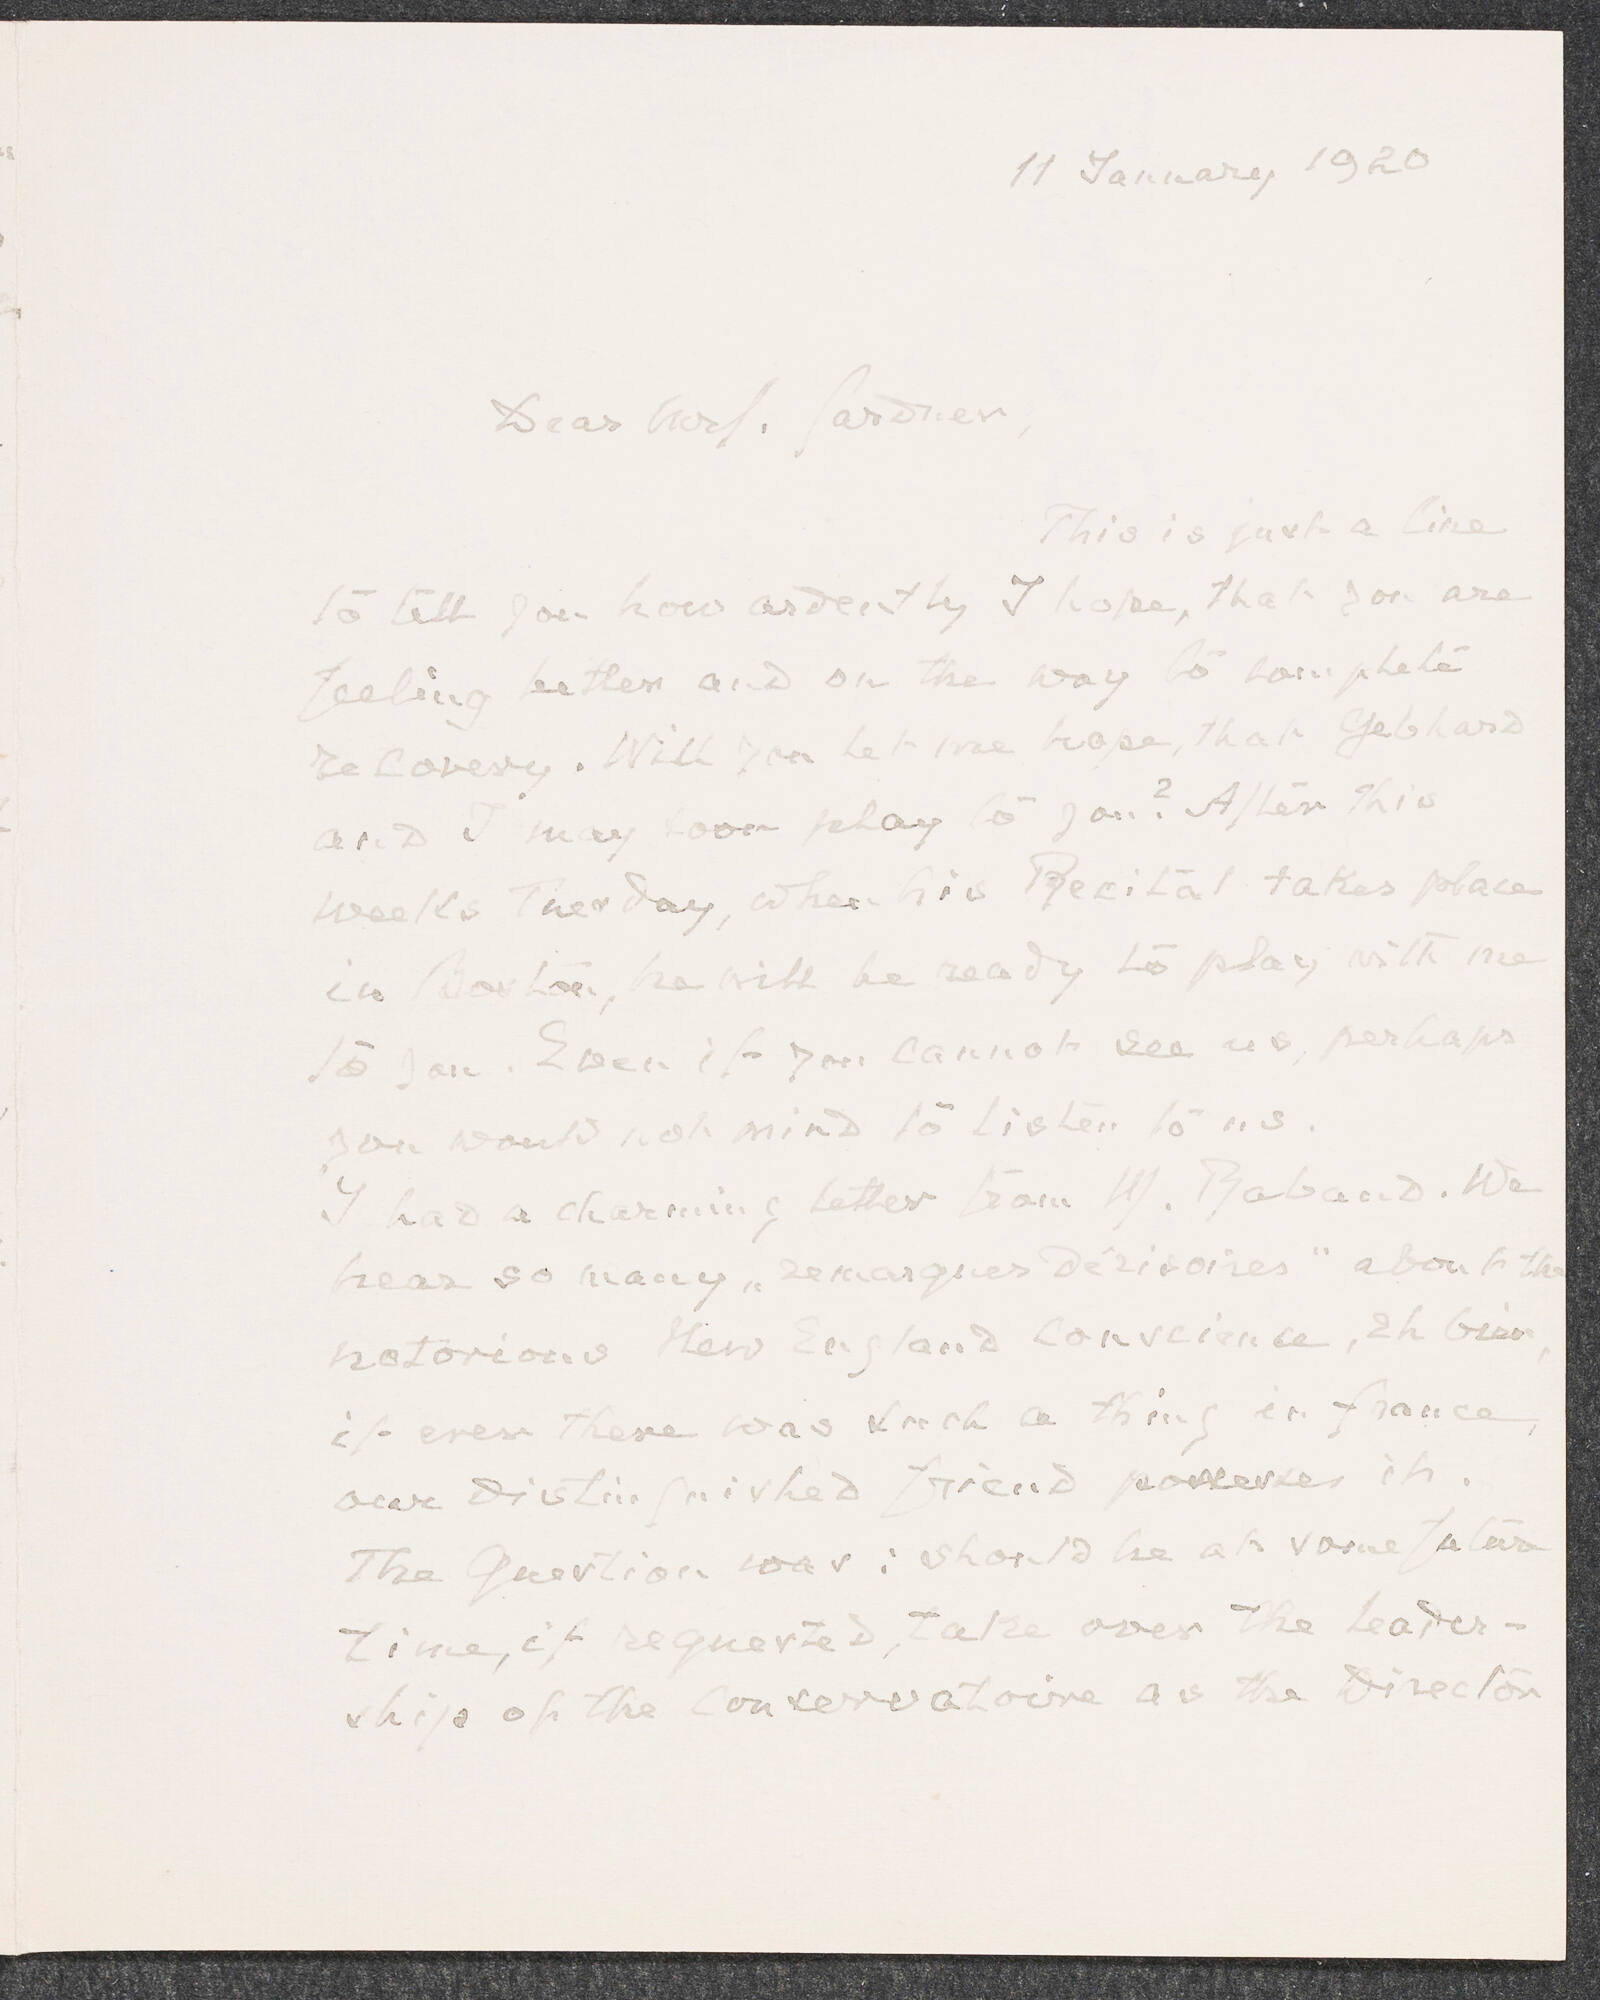 11 January 1920
Dear Mrs. Gardner,
This is just a line
to tell you how ardently I hope, that you are
feeling better and on the way to complete
recovery. Will you let me hope, that Gebhard
and I may soon play to you? After this
weeks Tuesday, when his Recital takes place
in Boston, he will be ready to play with me
to you. Even if you cannot see us, perhaps
you would not mind to listen to us.
I had a charming letter from M. Rabaud. We
hear so many „remarques dérisoires" about the
notorious New England Conscience, eh bien,
if ever there was such a thing in France,
our distinguished friend possesses it.
The Question was: should he at some future
time, if requested, take over the leader-
ship of the Conservatoire as the Director